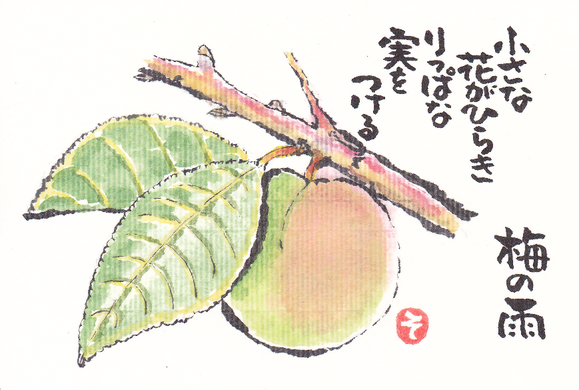 小さな
花がひらき
りっぱな
実を
つける
梅の雨
そ